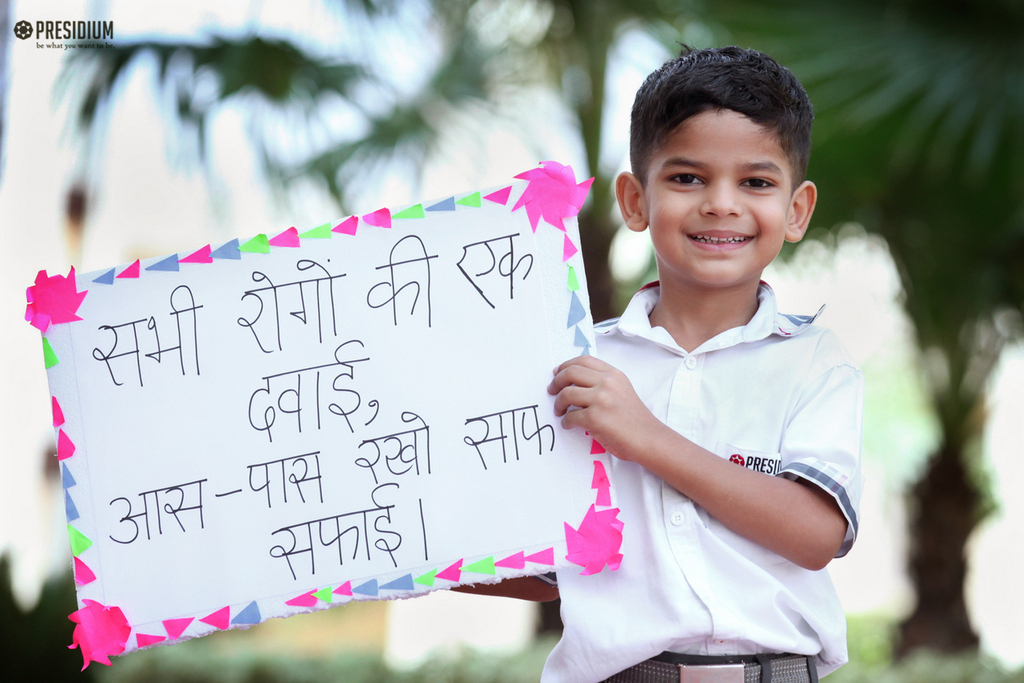 PRESIDIUM
be what you want to be
सभी रोगों की एक
दवाई,
आस-पास रखो साफ
सफाई।
PRESID